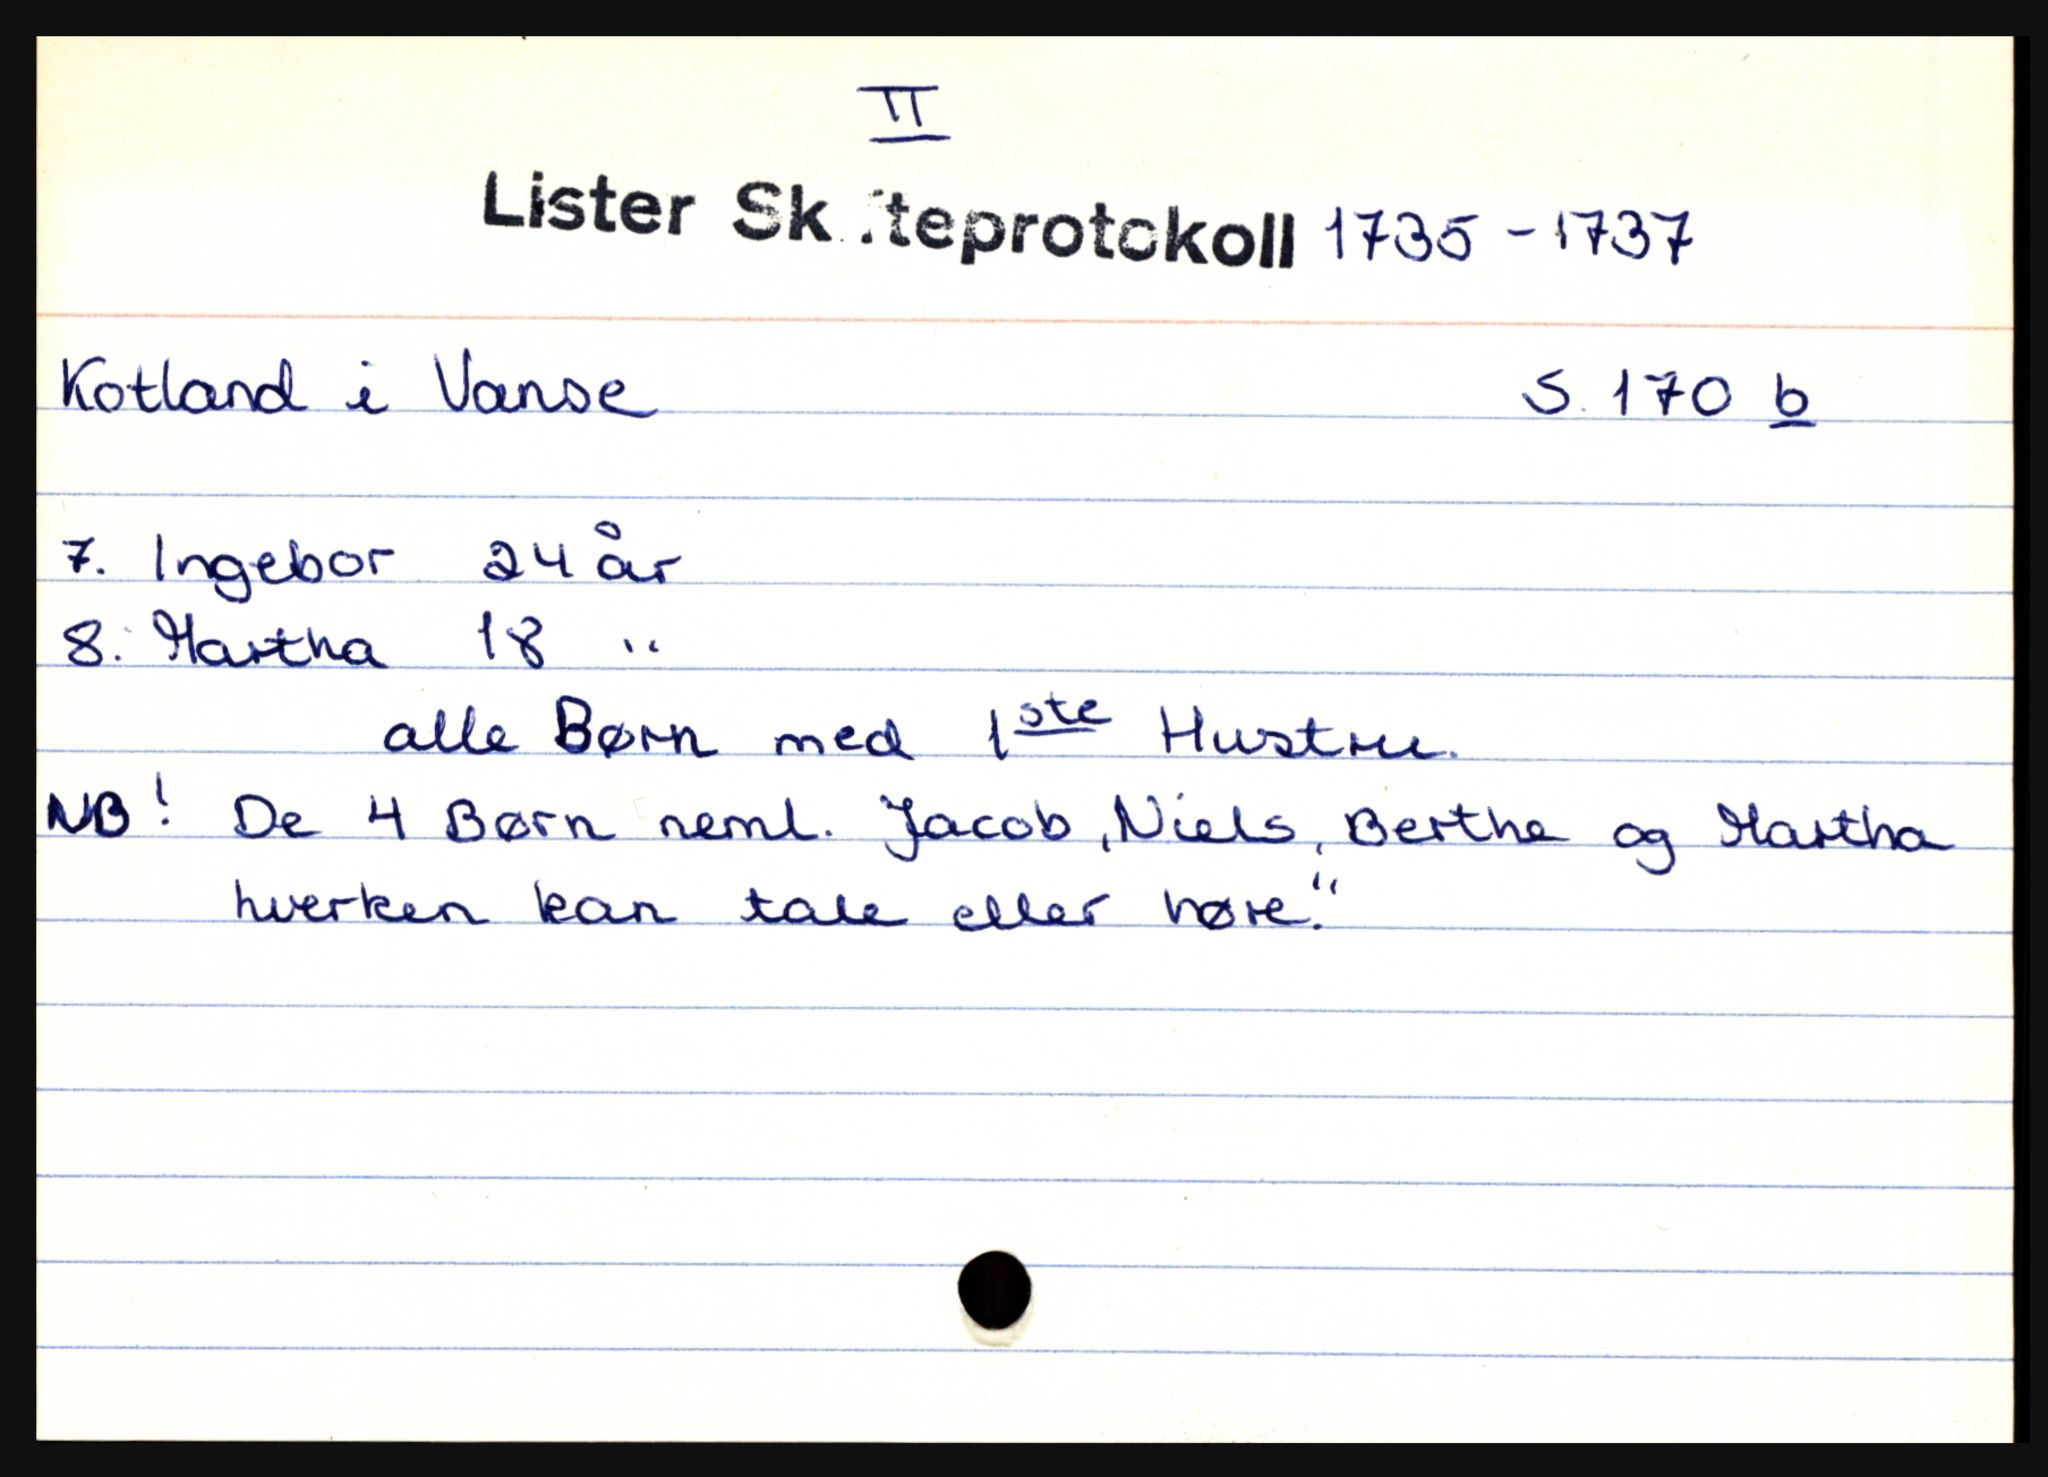 II
Lister Skifteprotokoll 1735-1737
Kotland i Vanse S. 170 b
7. Ingebor 24 år
8. Martha 18 "
alle Børn med 1ste Hustru.
NB! De 4 Børn neml. Jacob, Niels, Berthe og Martha
hverken kan tale eller høre."